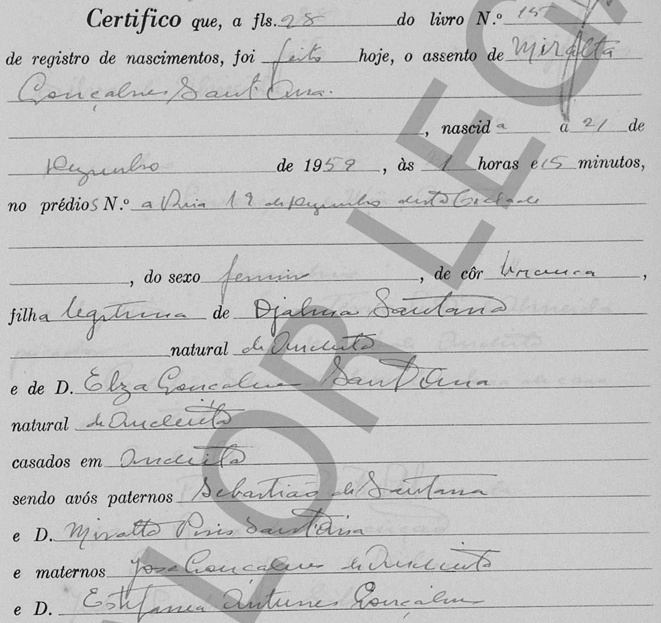 Certifico que, a fls. 28 do livro N.º 15
de registro de nascimentos, foi feito hoje, o assento de Miralta
Gonçalves Sant'Ana.
, nascida a 21 de
Dezembro de 1959, às horas e 15 minutos,
no prédios N.º a Rua 12 de Dezembro desta Cidade
, do sexo femin , de côr branca ,
filha legitima de Djalma Santana
natural de
e de D. Elza Gonçalves Sant'Ana
natural de
casados em
sendo avós paternos Sebastião de Santana
e D. Miralta Pires Sant'Ana
e maternos José Gonçalves de
e D. Estefanea Antunes Gonçalves
VALOR LEGAL